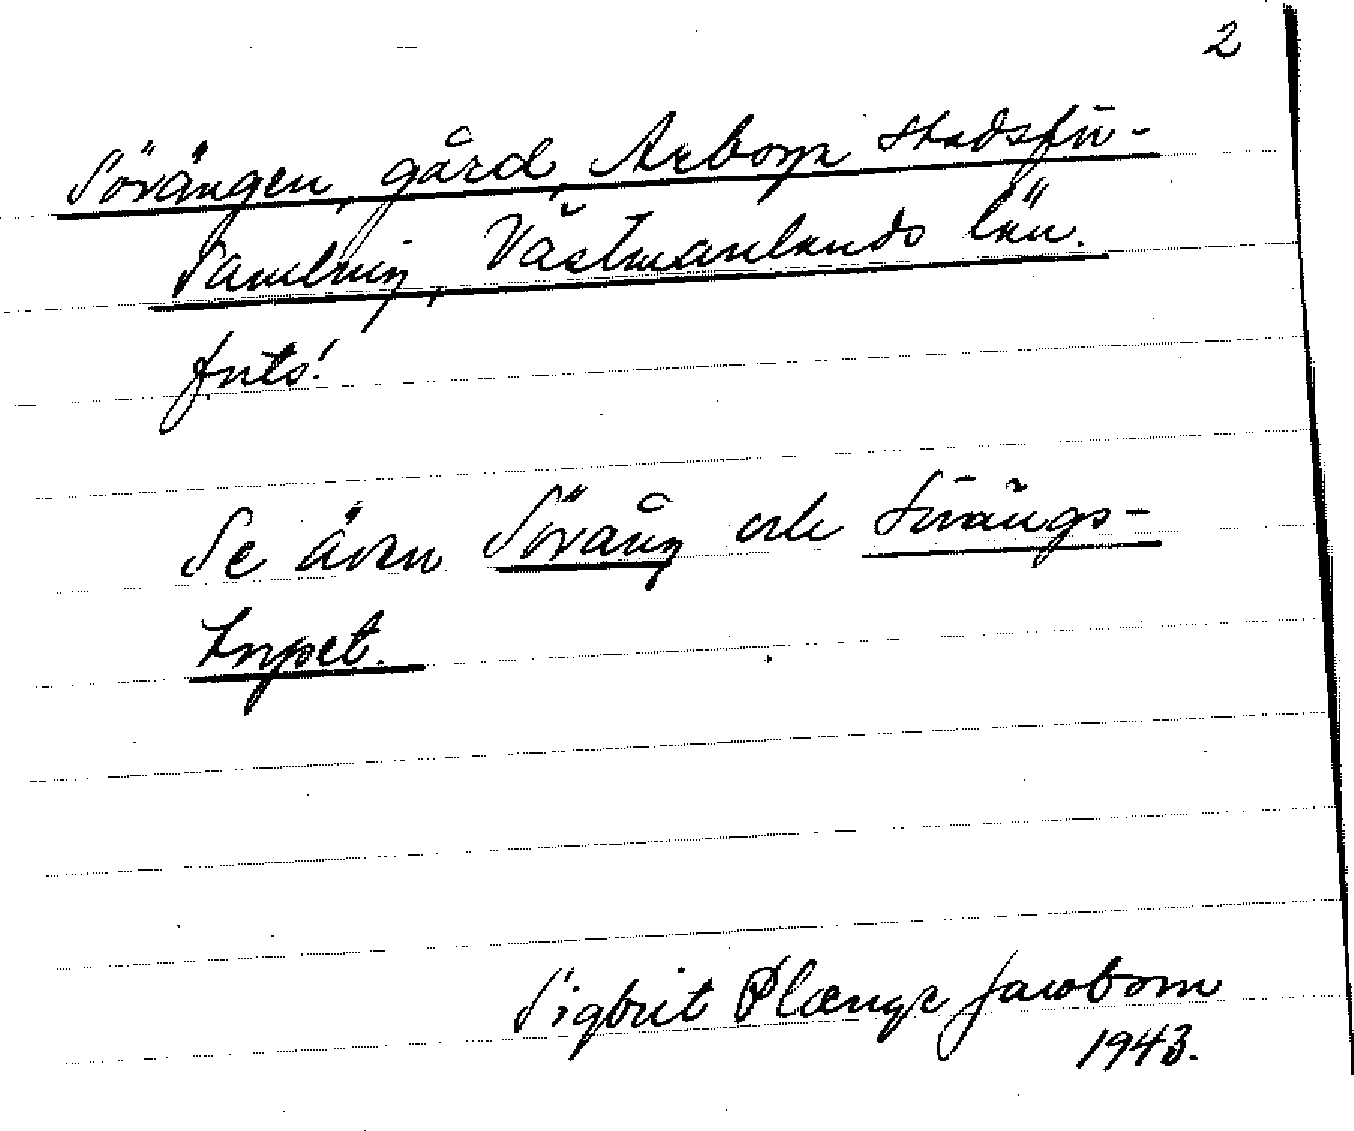 2
Sörängen, gård, Arboga stadsför-
samling, Västmanlands län.
forts!
Se även Söräng och Sörängs-
torpet.
Sigbrit Plænge Jacobson
1943.